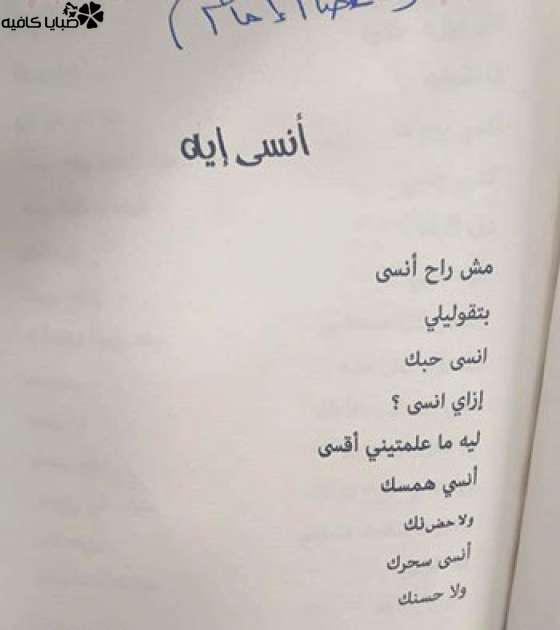 صبايا كافيه
أنسى إيه
مش راح أنسى
بتقوليلي
انسى حبك
إزاي انسى ؟
ليه ما علمتيني أقسى
أنسي همسك
ولا حضنك
أنسى سحرك
ولا حسنك